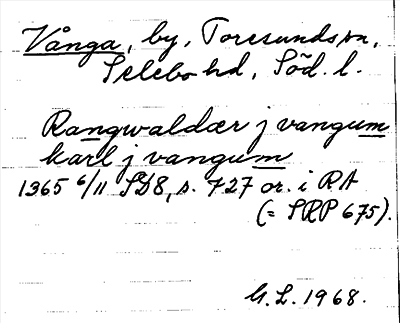 Vånga, by, Toresunds sn,
Selebo hd, Söd. l.
Rangwaldær j vangum
karl j vangum
1365 6/11 SD8, s. 727 or. i RA
(= SRP 675).
G.L. 1968.